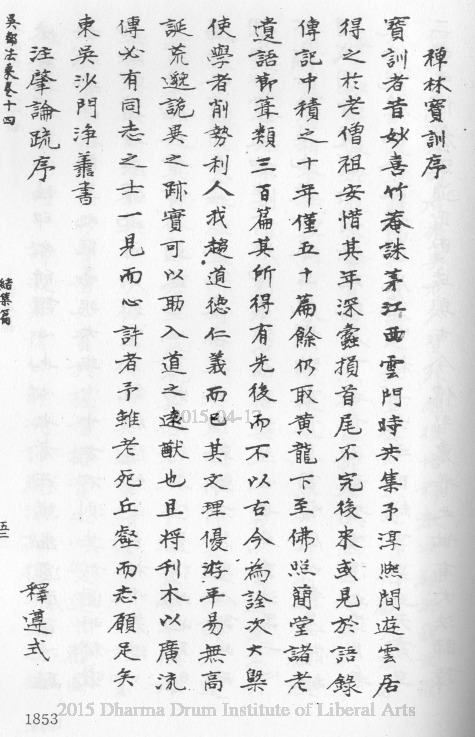 禪林寶訓序
寶訓者昔妙喜竹菴誅茅江西雲門時共集予淳熈間遊雲居
得之於老僧祖安惜其年深蠹損首尾不完後來或見於語錄
傳記中積之十年僅五十篇餘仍取黃龍下至佛照簡堂諸老
遺語節葺類三百篇其所得有先後而不以古今為詮次大槩
使學者削勢利人我趨道德仁義而已其文理優游平易無高
誕荒邈詭異之跡實可以助入道之遠猷也且將刋木以廣流
傳必有同志之士一見而心許者予雖老死丘壑而志願足矣
東吳沙門淨善書
注肇論疏序
釋遵式
吳都法乘卷十四
緒集篇
五三
1853
2015-04-13
2015 Dharma Drum Institute of Liberal Arts